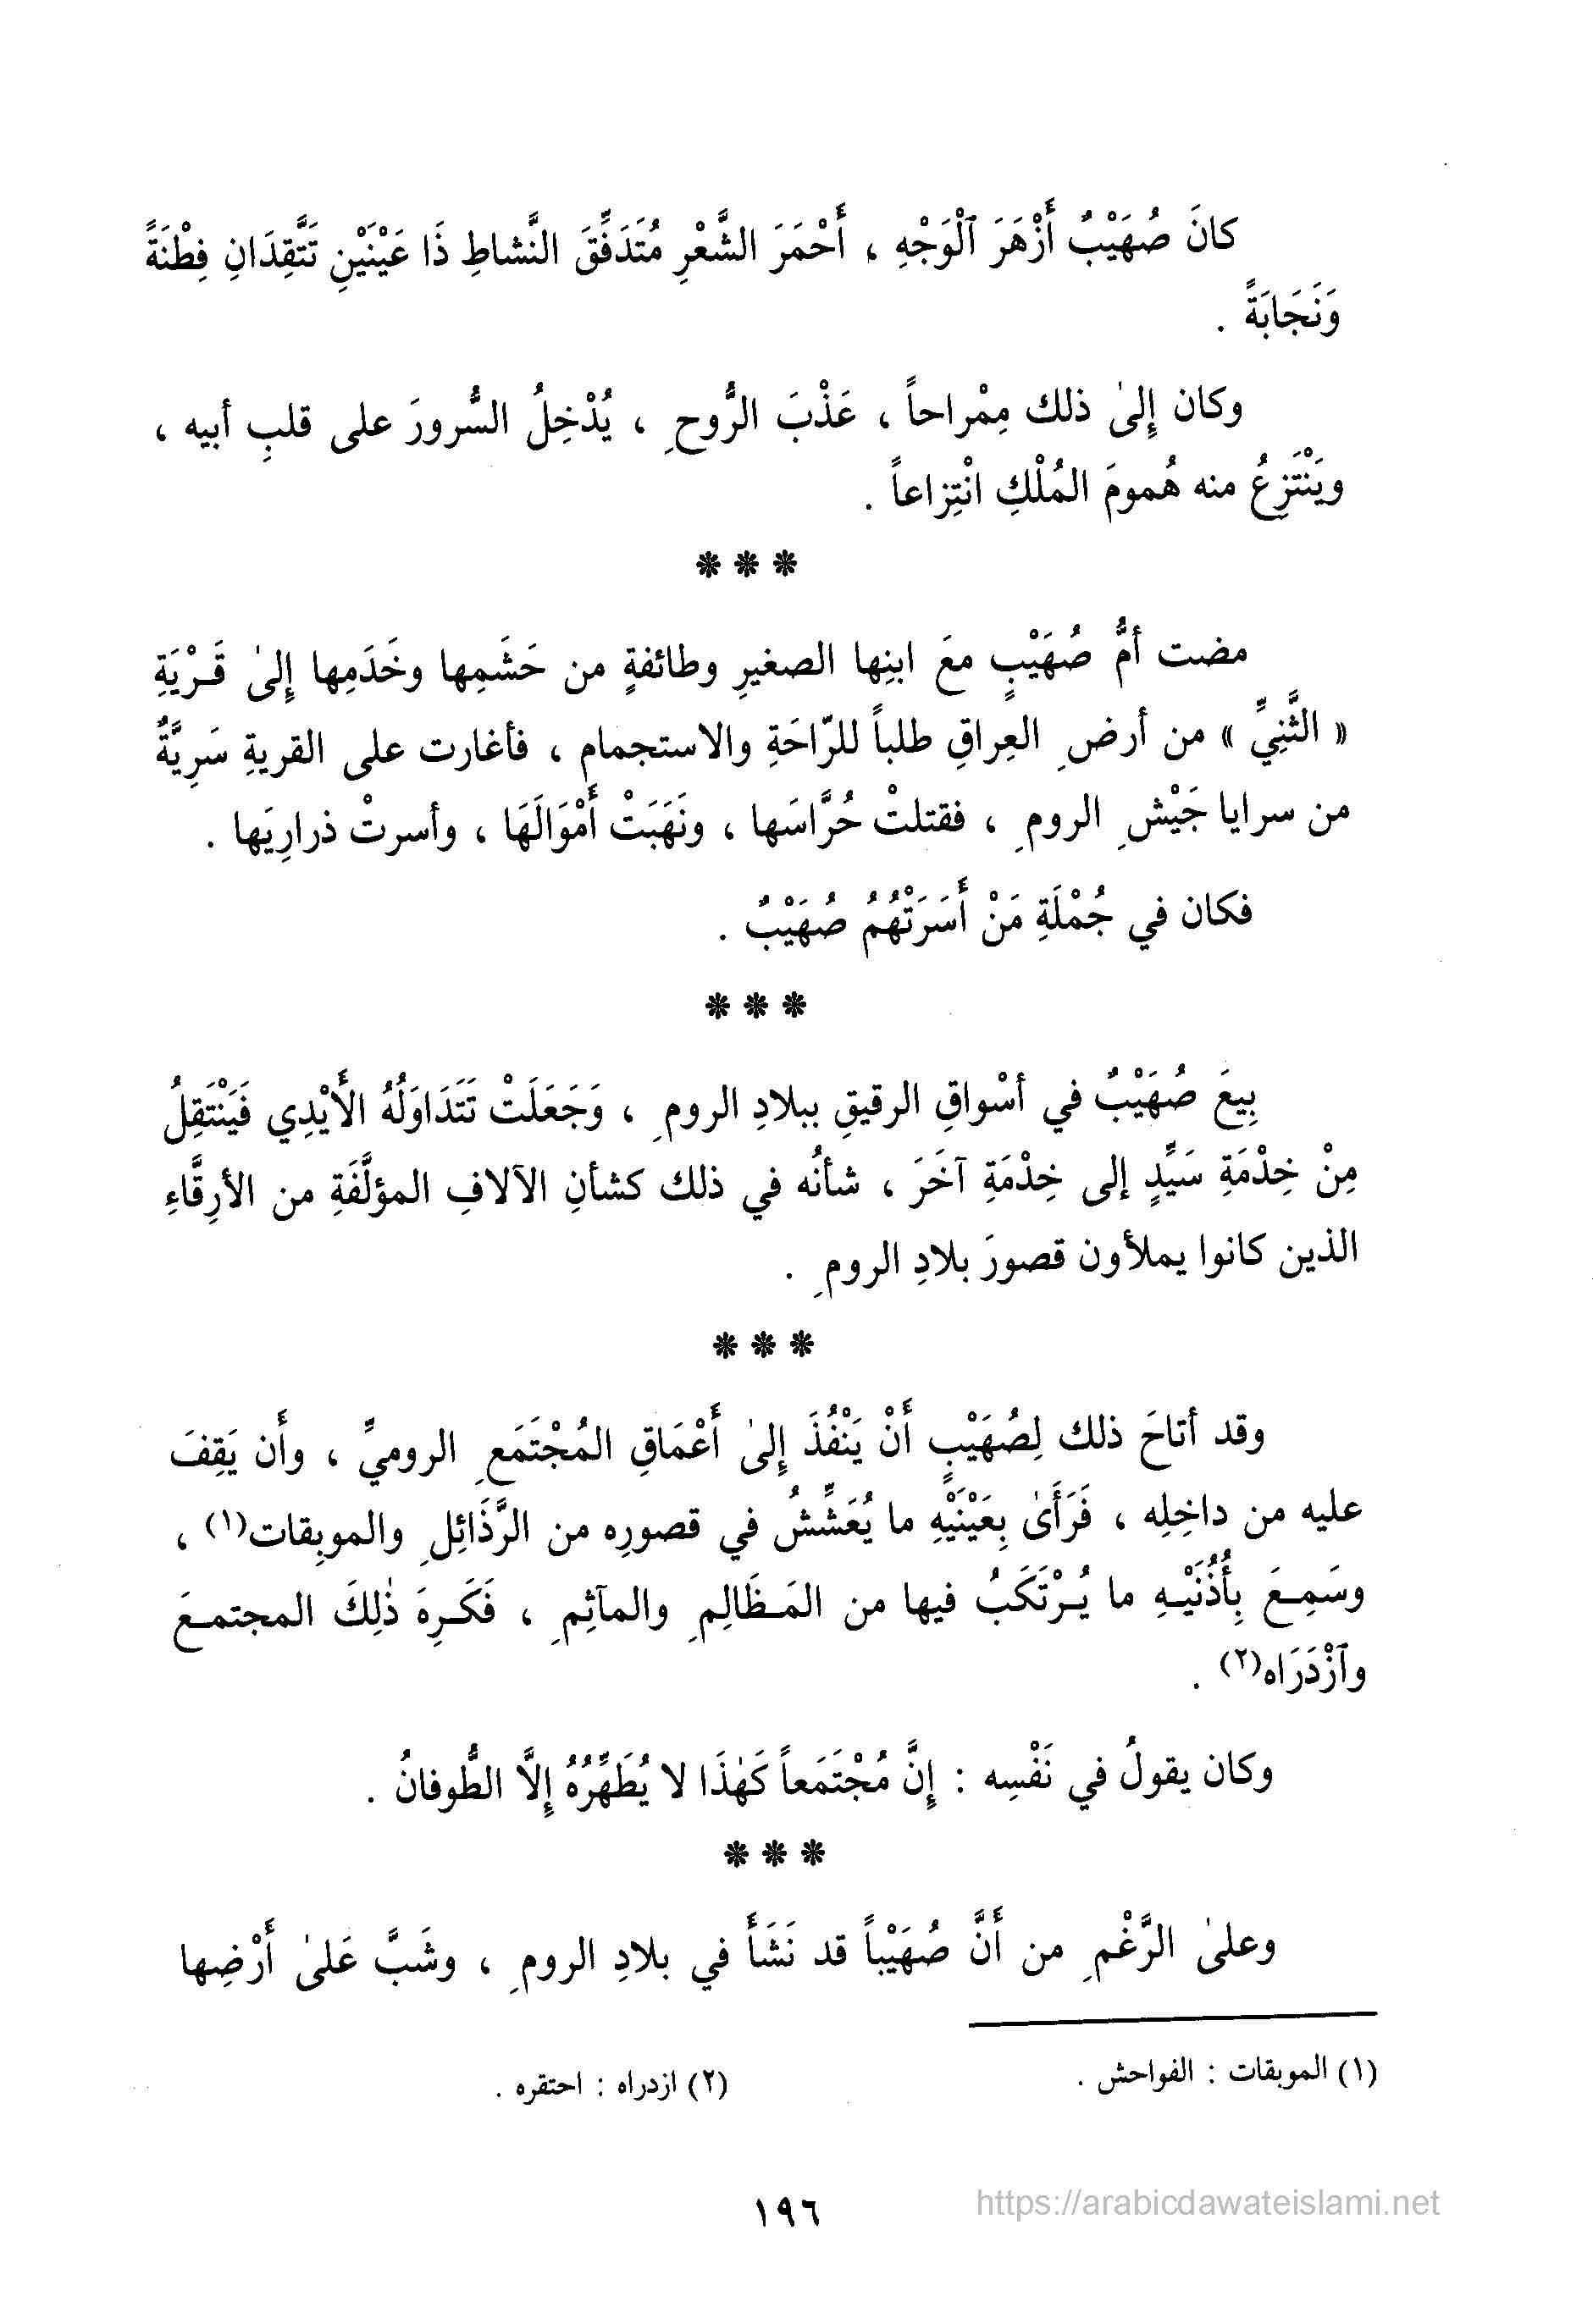 كانَ صُهَيْبٌ أَزْهَرَ ٱلْوَجْهِ ، أَحْمَرَ الشَّعْرِ مُتَدَفِّقَ النَّشاطِ ذَا عَيْنَيْنِ تَتَّقِدَانِ فِطْنَةً
وَنَجَابَةً .
وكان إِلىٰ ذلك مِمْراحاً ، عَذْبَ الرُّوحِ ، يُدْخِلُ السُّرورَ على قلبِ أبيه ،
ويَنْتَزِعُ منه هُمومَ المُلْكِ انْتِزاعاً .
* * *
مضت أمُّ صُهَيْبٍ معَ ابنِها الصغيرِ وطائفةٍ من حَشَمِها وخَدَمِها إِلىٰ قَـرْيَةِ
« الثَّنِيِّ » من أرضِ العِراقِ طلباً للرّاحَةِ والاستجمامِ ، فأغارت على القريةِ سَرِيَّةٌ
من سرايا جَيْشِ الرومِ ، فقتلتْ حُرَّاسَها ، ونَهَبَتْ أَمْوَالَهَا ، وأسرتْ ذرارِيَها .
فكان في جُمْلَةِ مَنْ أَسَرَتْهُمُ صُهَيْبٌ .
* * *
بِيعَ صُهَيْبٌ في أسْواقِ الرقيقِ ببلادِ الرومِ ، وَجَعَلَتْ تَتَدَاوَلُهُ الأَيْدِي فَيَنْتَقِلُ
مِنْ خِدْمَةِ سَيِّدٍ إلى خِدْمَةِ آخَرَ ، شأنُه في ذلك كشأنِ الآلافِ المؤلَّفَةِ من الأرِقَّاءِ
الذين كانوا يملأون قصورَ بلادِ الرومِ .
* * *
وقد أتاحَ ذلك لِصُهَيْبٍ أَنْ يَنْفُذَ إِلىٰ أَعْمَاقِ المُجْتَمَعِ الروميِّ ، وأَن يَقِفَ
عليه من داخِلِه ، فَرَأَىٰ بِعَيْنَيْهِ ما يُعَشِّشُ في قصورِه من الرَّذَائِلِ والموبِقات(١) ،
وسَمِـعَ بِأُذُنَيْـهِ ما يُـرْتَكَبُ فيها من المَـظَالِمِ والمآثِمِ ، فَكَـرِهَ ذٰلِكَ المجتمـعَ
وٱزْدَرَاه(٢) .
وكان يقولُ في نَفْسِه : إِنَّ مُجْتَمَعاً كَهٰذَا لا يُطَهِّرُهُ إِلَّا الطُّوفانُ .
* * *
وعلىٰ الرَّغْمِ من أَنَّ صُهَيْباً قد نَشَأَ في بلادِ الرومِ ، وشَبَّ عَلىٰ أَرْضِها
(١) الموبقات : الفواحش . (٢) ازدراه : احتقره .
١٩٦ https://arabicdawateislami.net